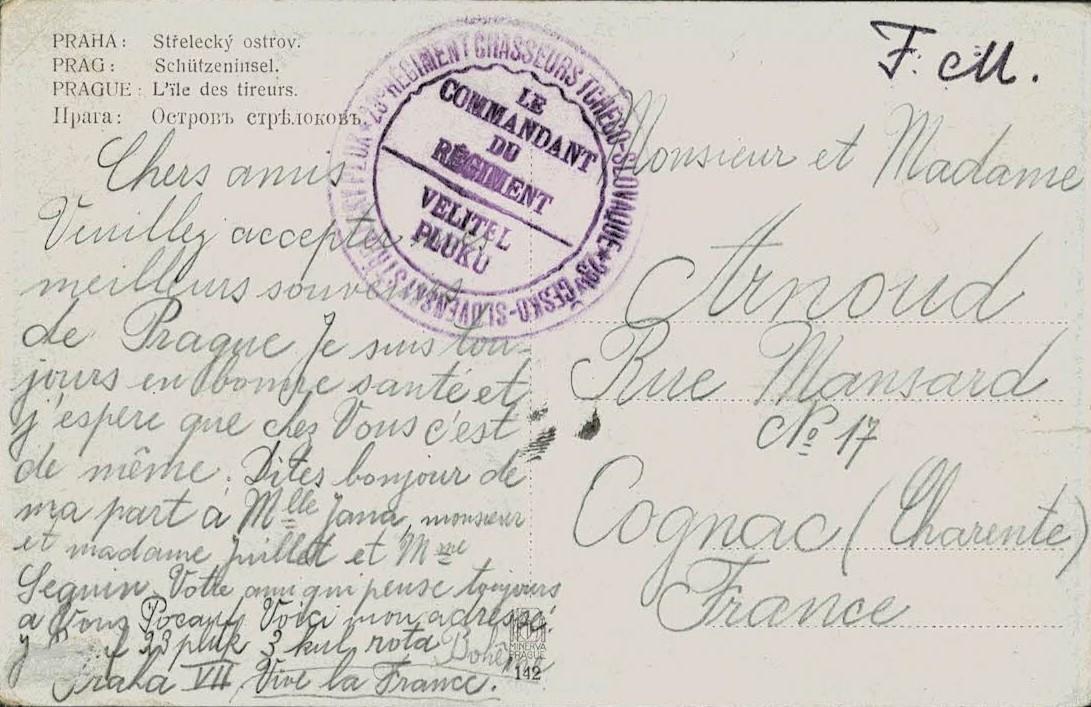 PRAHA: Střelecký ostrov.
PRAG: Schützeninsel.
PRAGUE: L'île des tireurs.
Прага: Островъ стрѣлоковъ.
23e RÉGIMENT CHASSEURS TCHÉCO-SLOVAQUE
ČESKO-SLOVENSKÝ PLUK
LE
COMMANDANT
DU
RÉGIMENT
VELITEL
PLUKU
F. M.
Chers amis
Veuillez accepter
meilleurs souvenirs
de Prague Je suis tou-
jours en bonne santé et
j'espere que chez Vous c'est
de même. Dites bonjour de
ma part à Mlle Jana, monsieur
et madame Juillet et Mme
Seguin. Votre ami qui pense toujours
a Vous Voici mon adresse:
23 pluk 3 kul rota
Praha VII Bohême
Vive la France.
Monsieur et Madame
Arnoud
Rue Mansard
No 17
Cognac (Charente)
France
MINERVA
PRAGUE
142